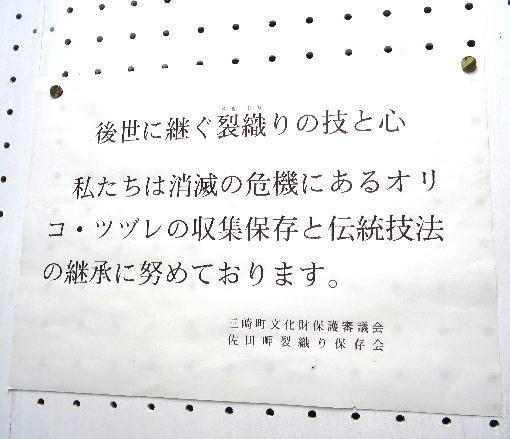 後世に継ぐ裂織りの技と心
私たちは消滅の危機にあるオリ
コ・ツヅレの収集保存と伝統技法
の継承に努めております。
三崎町文化財保護審議会
佐田岬裂織り保存会